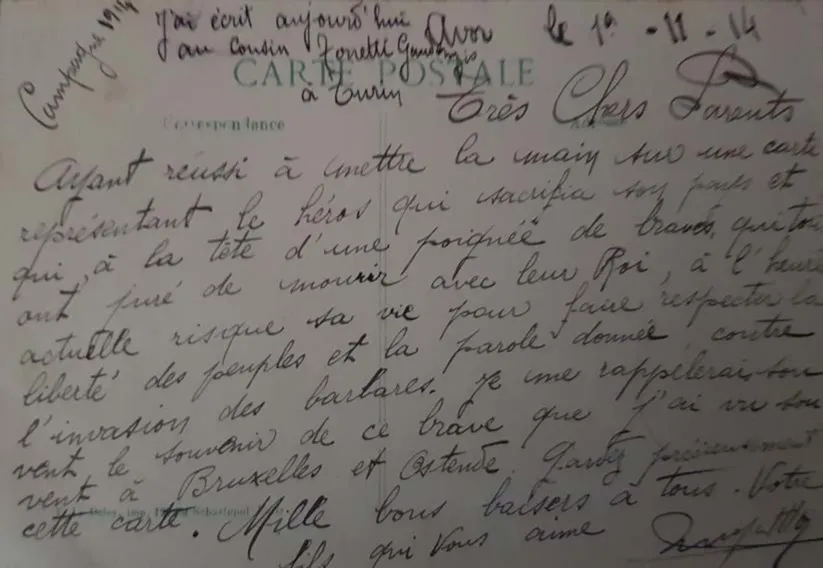 Campagne 1914
J'ai écrit aujourd'hui
au cousin
à Turin
Avor le 1º - 11 - 14
CARTE POSTALE
Correspondance
Très Chers Parents
Ayant réussi à mettre la main sur une carte
représentant le héros qui sacrifia son pays et
qui, à la tête d'une poignée de braves, qui tous
ont juré de mourir avec leur Roi, à l'heure
actuelle risque sa vie pour faire respecter la
liberté des peuples et la parole donnée, contre
l'invasion des barbares. Je me rappèlerai sou
vent le souvenir de ce brave que j'ai vu sou
vent à Bruxelles et Ostende. Gardez précieusement
cette carte. Mille bons baisers à tous. Votre
fils qui vous aime